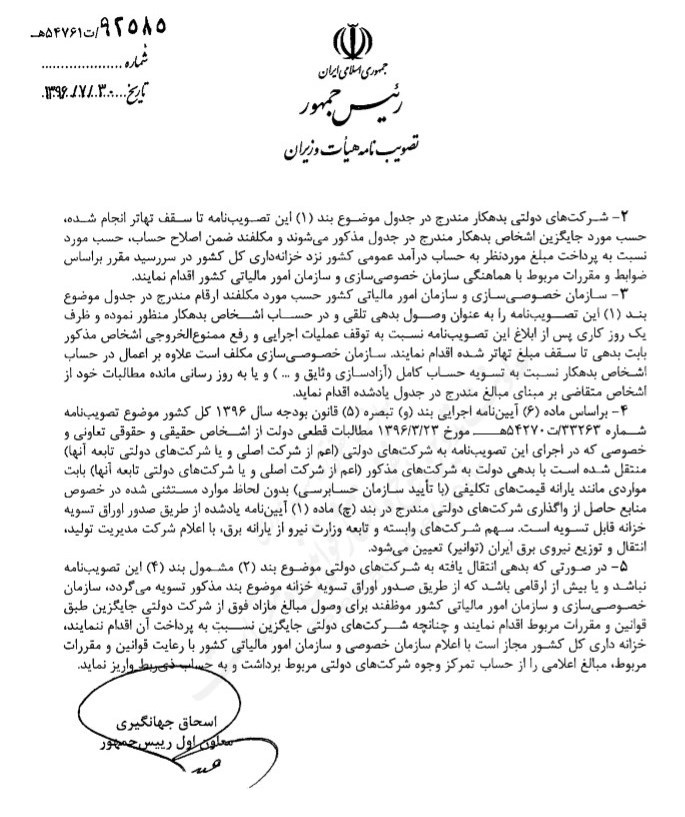 ۹۲۵۸۵/ت۵۴۷۶۱هـ
شماره ....................
تاریخ....۱۳۹۶/۷/۳۰
جمهوری اسلامی ایران
رئیس جمهور
تصویب نامه هیأت وزیران
۲- شرکت‌های دولتی بدهکار مندرج در جدول موضوع بند (۱) این تصویب‌نامه تا سقف تهاتر انجام شده،
حسب مورد جایگزین اشخاص بدهکار مندرج در جدول مذکور می‌شوند و مکلفند ضمن اصلاح حساب، حسب مورد
نسبت به پرداخت مبلغ موردنظر به حساب درآمد عمومی کشور نزد خزانه‌داری کل کشور در سررسید مقرر براساس
ضوابط و مقررات مربوط با هماهنگی سازمان خصوصی‌سازی و سازمان امور مالیاتی کشور اقدام نمایند.
۳- سازمان خصوصی‌سازی و سازمان امور مالیاتی کشور حسب مورد مکلفند ارقام مندرج در جدول موضوع
بند (۱) این تصویب‌نامه را به عنوان وصول بدهی تلقی و در حساب اشخاص بدهکار منظور نموده و ظرف
یک روز کاری پس از ابلاغ این تصویب‌نامه نسبت به توقف عملیات اجرایی و رفع ممنوع‌الخروجی اشخاص مذکور
بابت بدهی تا سقف مبلغ تهاتر شده اقدام نمایند. سازمان خصوصی‌سازی مکلف است علاوه بر اعمال در حساب
اشخاص بدهکار نسبت به تسویه حساب کامل (آزادسازی وثایق و ... ) و یا به روز رسانی مانده مطالبات خود از
اشخاص متقاضی بر مبنای مبالغ مندرج در جدول یادشده اقدام نماید.
۴- براساس ماده (۶) آیین‌نامه اجرایی بند (و) تبصره (۵) قانون بودجه سال ۱۳۹۶ کل کشور موضوع تصویب‌نامه
شماره ۳۳۲۶۳/ت۵۴۲۷۰هـ مورخ ۱۳۹۶/۳/۲۳ مطالبات قطعی دولت از اشخاص حقیقی و حقوقی تعاونی و
خصوصی که در اجرای این تصویب‌نامه به شرکت‌های دولتی (اعم از شرکت اصلی و یا شرکت‌های دولتی تابعه آنها)
منتقل شده است با بدهی دولت به شرکت‌های مذکور (اعم از شرکت اصلی و یا شرکت‌های دولتی تابعه آنها) بابت
مواردی مانند یارانه قیمت‌های تکلیفی (با تأیید سازمان حسابرسی) بدون لحاظ موارد مستثنی شده در خصوص
منابع حاصل از واگذاری شرکت‌های دولتی مندرج در بند (چ) ماده (۱) آیین‌نامه یادشده از طریق صدور اوراق تسویه
خزانه قابل تسویه است. سهم شرکت‌های وابسته و تابعه وزارت نیرو از یارانه برق، با اعلام شرکت مدیریت تولید،
انتقال و توزیع نیروی برق ایران (توانیر) تعیین می‌شود.
۵- در صورتی که بدهی انتقال یافته به شرکت‌های دولتی موضوع بند (۲) مشمول بند (۴) این تصویب‌نامه
نباشد و یا بیش از ارقامی باشد که از طریق صدور اوراق تسویه خزانه موضوع بند مذکور تسویه می‌گردد، سازمان
خصوصی‌سازی و سازمان امور مالیاتی کشور موظفند برای وصول مبالغ مازاد فوق از شرکت دولتی جایگزین طبق
قوانین و مقررات مربوط اقدام نمایند و چنانچه شرکت‌های دولتی جایگزین نسبت به پرداخت آن اقدام ننمایند،
خزانه داری کل کشور مجاز است با اعلام سازمان خصوصی و سازمان امور مالیاتی کشور با رعایت قوانین و مقررات
مربوط، مبالغ اعلامی را از حساب تمرکز وجوه شرکت‌های دولتی مربوط برداشت و به حساب ذی‌ربط واریز نماید.
اسحاق جهانگیری
معاون اول رییس‌جمهور